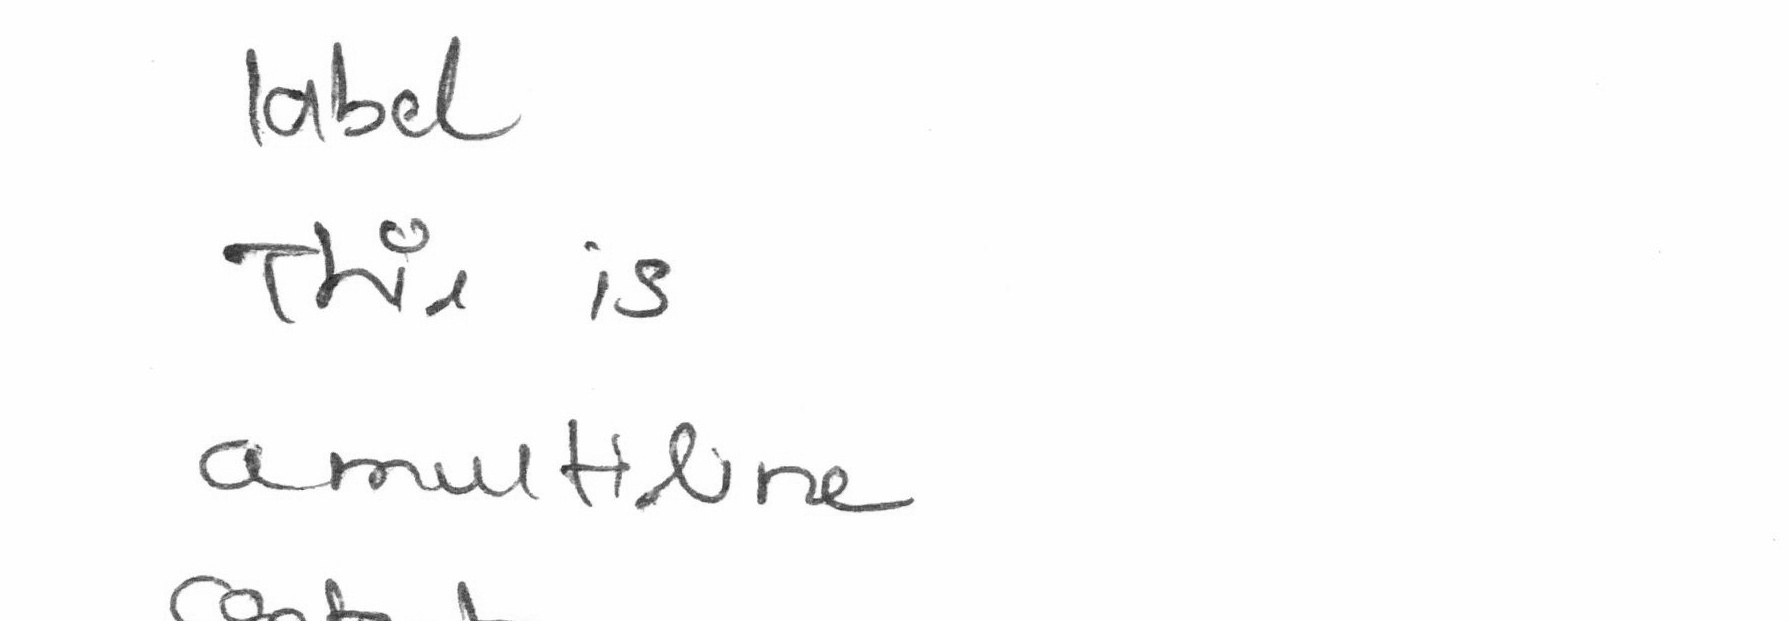 label
This is
a multiline